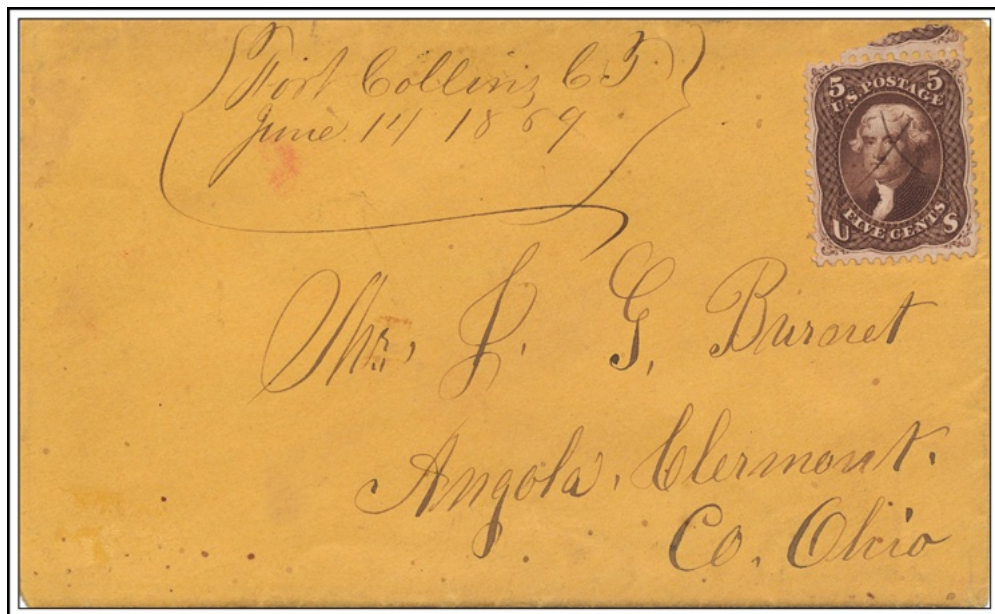 Fort Collins C T
June 14 1869
5 5
U.S. POSTAGE
FIVE CENTS
U S
Mr. J. G. Burnet
Angola, Clermont.
Co. Ohio